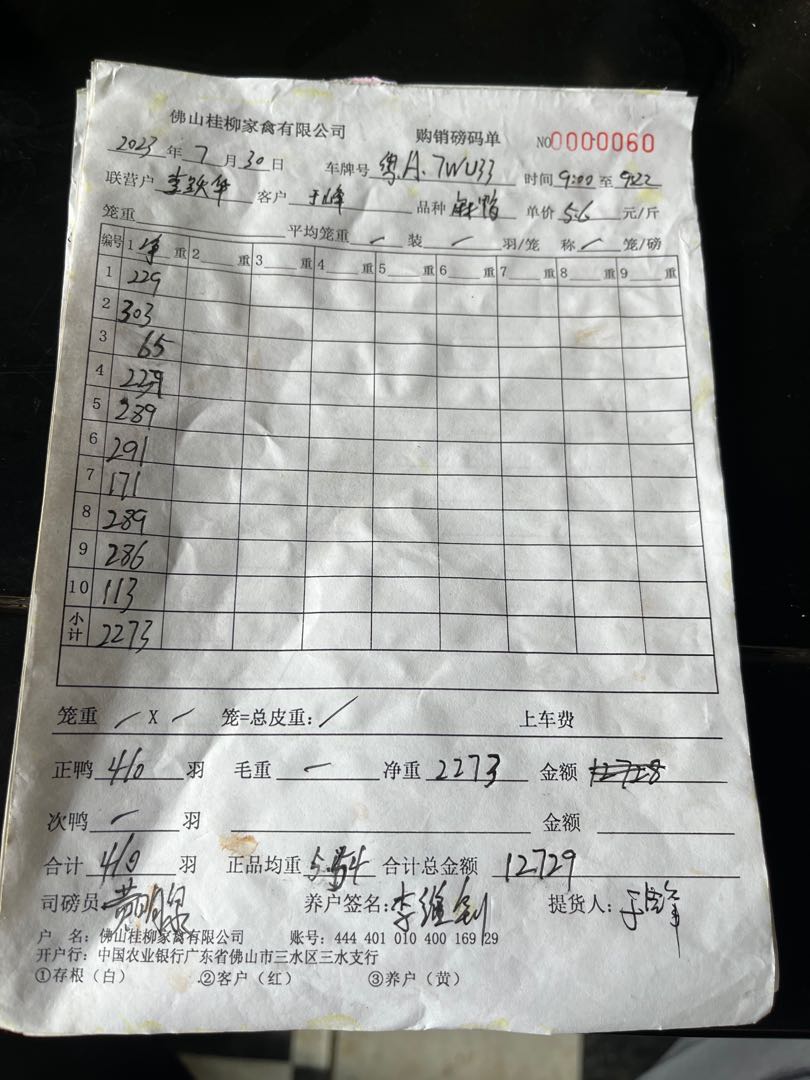 佛山桂柳家禽有限公司 购销磅码单 NO 0000060
2023 年 7 月 30 日 车牌号 粤A.7WU33 时间 9:00 至 9:22
联营户 客户 于峰 品种 麻鸭 单价 5.6 元/斤
笼重 平均笼重 — 装 — 羽/笼 称 — 笼/磅
编号 1 净 重 2 重 3 重 4 重 5 重 6 重 7 重 8 重 9 重
1 229
2 303
3 65
4
5 289
6 291
7 171
8 289
9 286
10 113
小计 2273
笼重 / X / 笼=总皮重: / 上车费
正鸭 410 羽 毛重 — 净重 2273 金额 12728
次鸭 — 羽 金额
合计 410 羽 正品均重 合计总金额 12729
司磅员 养户签名: 李维剑 提货人: 于峰
户 名: 佛山桂柳家禽有限公司 账号: 444 401 010 400 169 29
开户行: 中国农业银行广东省佛山市三水区三水支行
①存根（白） ②客户（红） ③养户（黄）